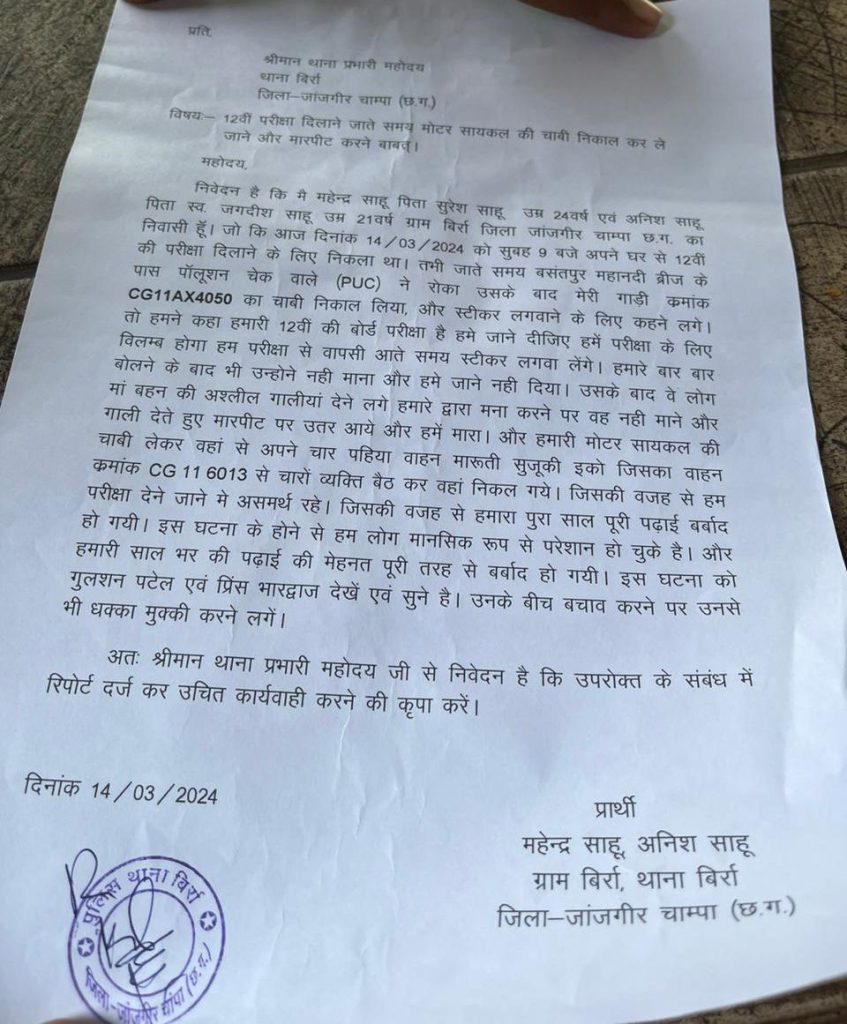 प्रति,
श्रीमान थाना प्रभारी महोदय
थाना बिर्रा
जिला–जांजगीर चाम्पा (छ.ग.)
विषयः– 12वीं परीक्षा दिलाने जाते समय मोटर सायकल की चाबी निकाल कर ले
जाने और मारपीट करने बाबत्।
महोदय,
निवेदन है कि मै महेन्द्र साहू पिता सुरेश साहू उम्र 24वर्ष एवं अनिश साहू
पिता स्व. जगदीश साहू उम्र 21वर्ष ग्राम बिर्रा जिला जांजगीर चाम्पा छ.ग. का
निवासी हूँ। जो कि आज दिनांक 14/03/2024 को सुबह 9 बजे अपने घर से 12वीं
की परीक्षा दिलाने के लिए निकला था। तभी जाते समय बसंतपुर महानदी ब्रीज के
पास पॉलूशन चेक वाले (PUC) ने रोका उसके बाद मेरी गाड़ी कमांक
CG11AX4050 का चाबी निकाल लिया, और स्टीकर लगवाने के लिए कहने लगे।
तो हमने कहा हमारी 12वीं की बोर्ड परीक्षा है हमे जाने दीजिए हमें परीक्षा के लिए
विलम्ब होगा हम परीक्षा से वापसी आते समय स्टीकर लगवा लेंगे। हमारे बार बार
बोलने के बाद भी उन्होने नही माना और हमे जाने नही दिया। उसके बाद वे लोग
मां बहन की अश्लील गालीयां देने लगे हमारे द्वारा मना करने पर वह नही माने और
गाली देते हुए मारपीट पर उतर आये और हमें मारा। और हमारी मोटर सायकल की
चाबी लेकर वहां से अपने चार पहिया वाहन मारूती सुजूकी इको जिसका वाहन
कमांक CG 11 6013 से चारों व्यक्ति बैठ कर वहां निकल गये। जिसकी वजह से हम
परीक्षा देने जाने मे असमर्थ रहे। जिसकी वजह से हमारा पुरा साल पूरी पढ़ाई बर्बाद
हो गयी। इस घटना के होने से हम लोग मानसिक रूप से परेशान हो चुके है। और
हमारी साल भर की पढ़ाई की मेहनत पूरी तरह से बर्बाद हो गयी। इस घटना को
गुलशन पटेल एवं प्रिंस भारद्वाज देखें एवं सुने है। उनके बीच बचाव करने पर उनसे
भी धक्का मुक्की करने लगें।
अतः श्रीमान थाना प्रभारी महोदय जी से निवेदन है कि उपरोक्त के संबंध में
रिपोर्ट दर्ज कर उचित कार्यवाही करने की कृपा करें।
दिनांक 14/03/2024
प्रार्थी
महेन्द्र साहू, अनिश साहू
ग्राम बिर्रा, थाना बिर्रा
जिला–जांजगीर चाम्पा (छ.ग.)
पुलिस थाना बिर्रा
जिला-जांजगीर चांपा (छ.ग.)